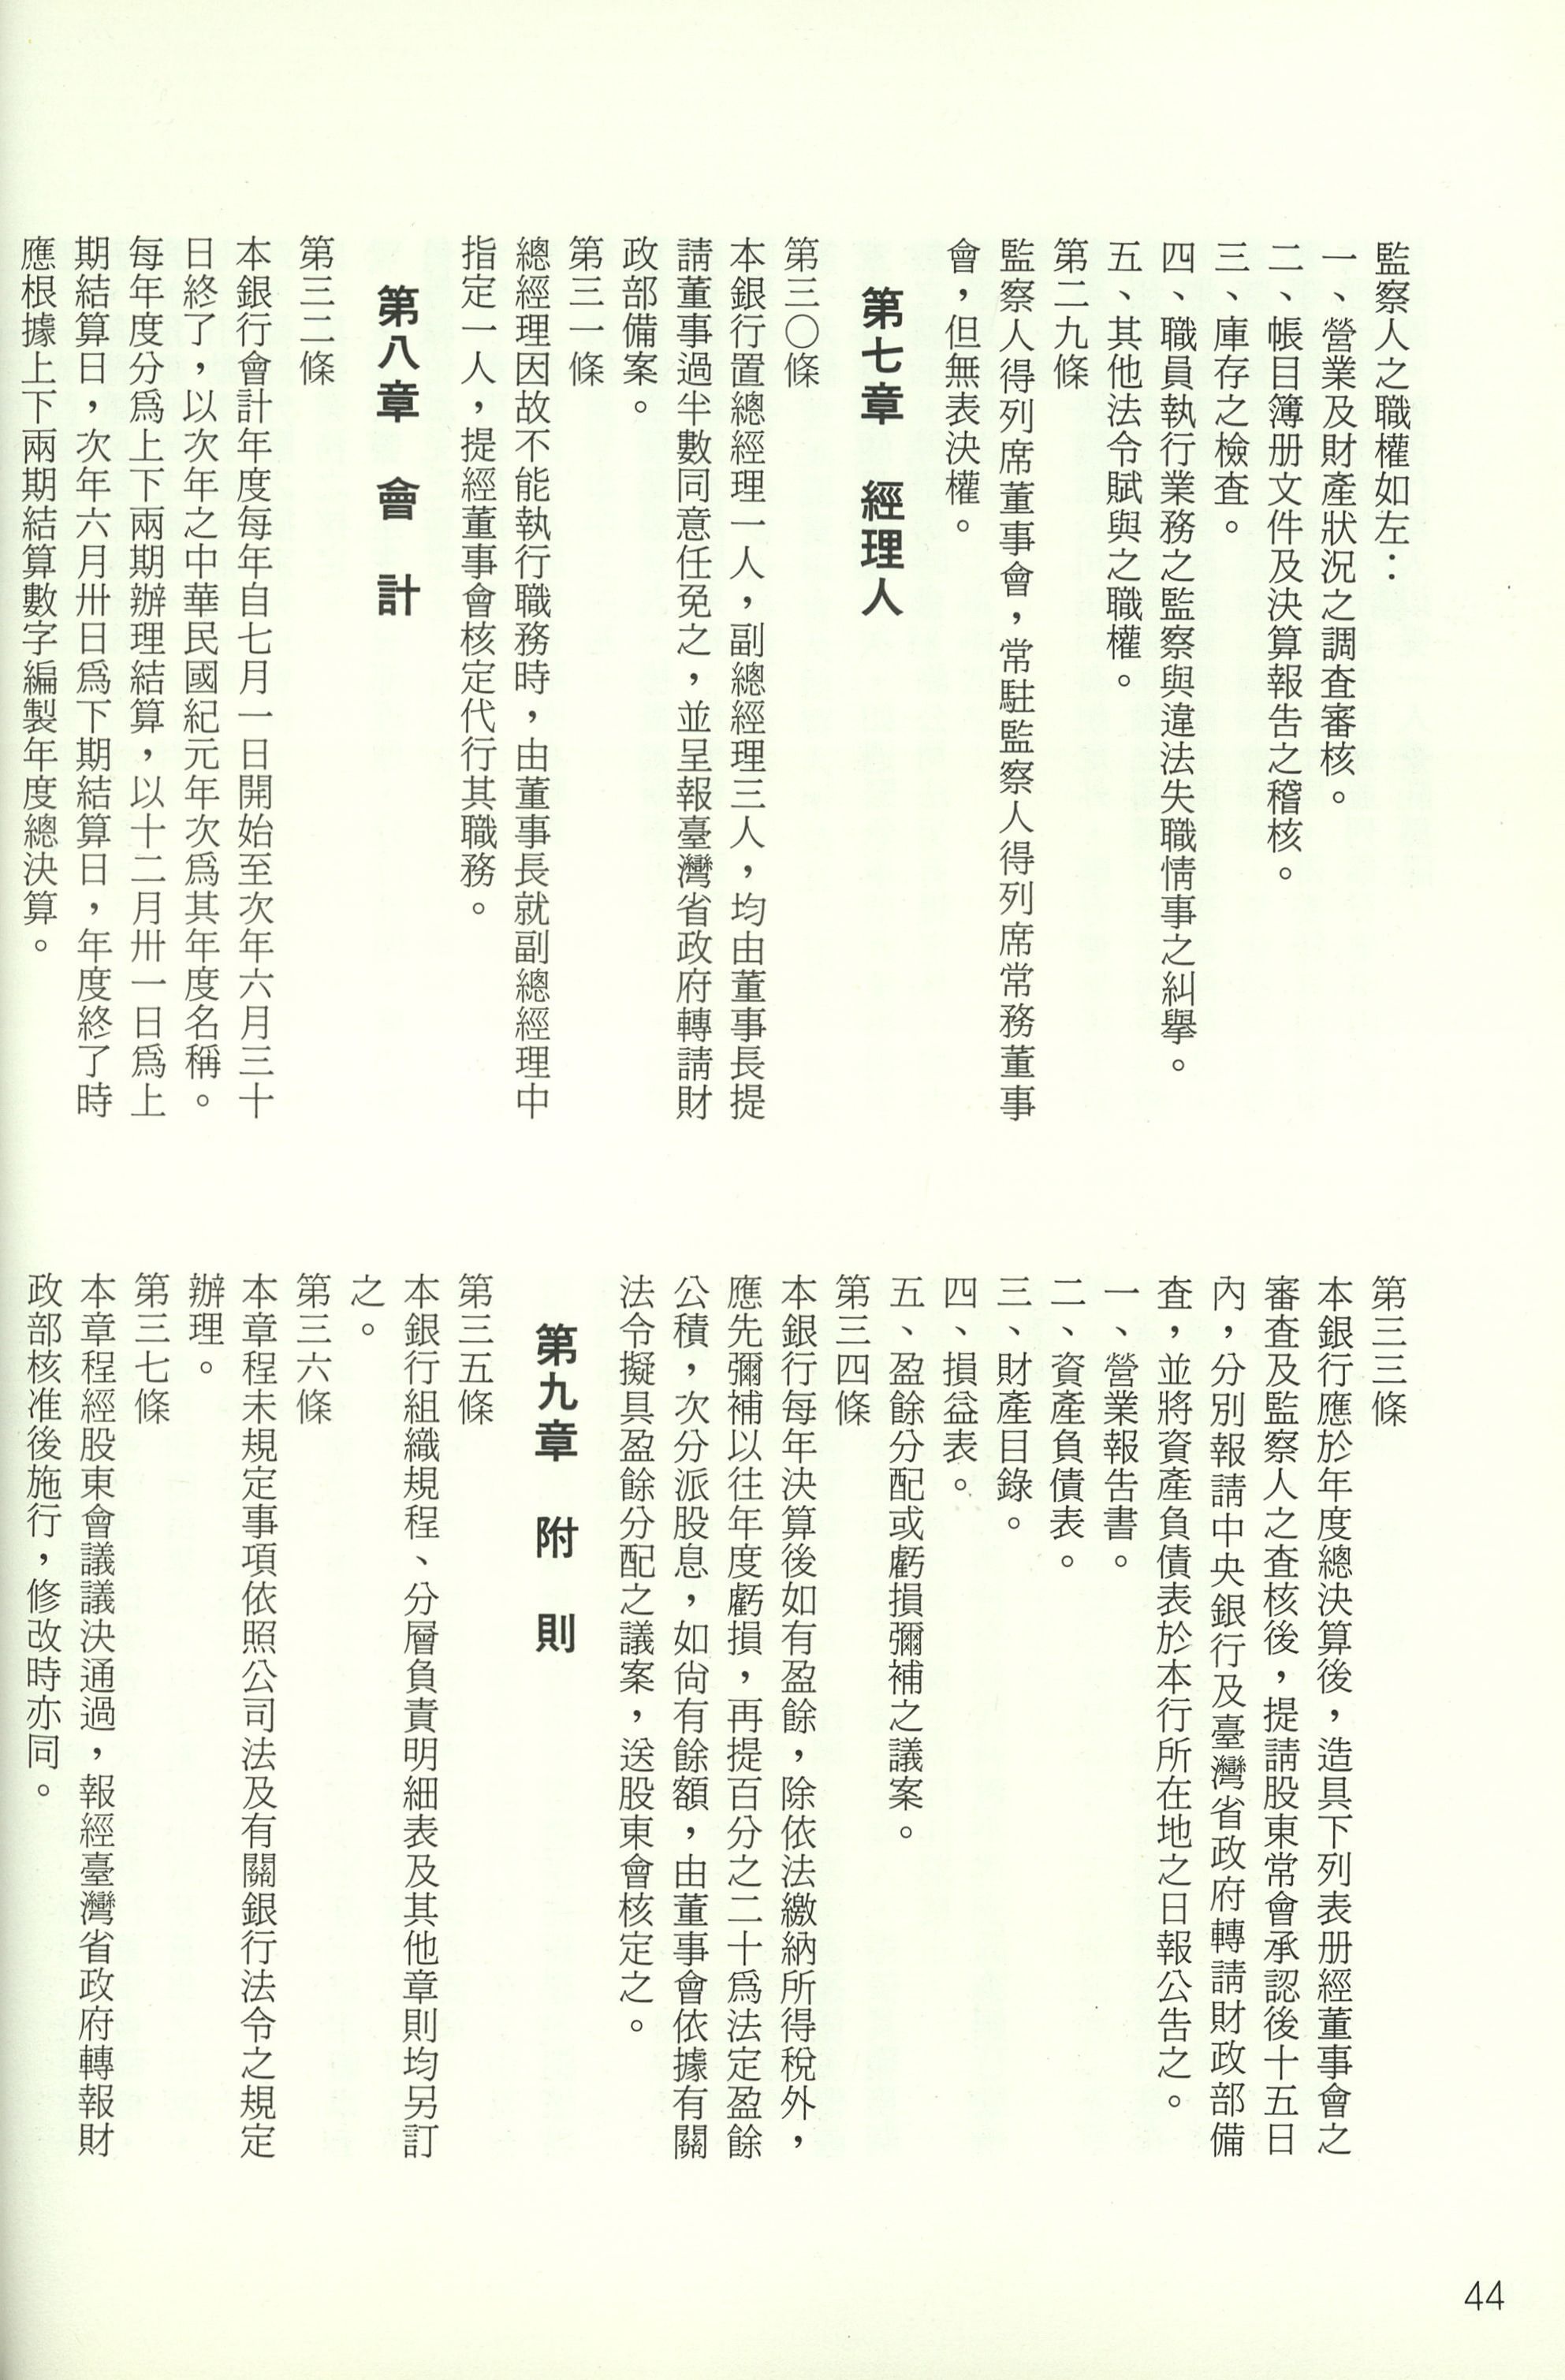 監察人之職權如左：
一、營業及財產狀況之調查審核。
二、帳目簿册文件及決算報告之稽核。
三、庫存之檢查。
四、職員執行業務之監察與違法失職情事之糾擧。
五、其他法令賦與之職權。
第二九條
監察人得列席董事會，常駐監察人得列席常務董事
會，但無表決權。
第七章　經理人
第三〇條
本銀行置總經理一人，副總經理三人，均由董事長提
請董事過半數同意任免之，並呈報臺灣省政府轉請財
政部備案。
第三一條
總經理因故不能執行職務時，由董事長就副總經理中
指定一人，提經董事會核定代行其職務。
第八章　會　計
第三二條
本銀行會計年度每年自七月一日開始至次年六月三十
日終了，以次年之中華民國紀元年次爲其年度名稱。
每年度分爲上下兩期辦理結算，以十二月卅一日爲上
期結算日，次年六月卅日爲下期結算日，年度終了時
應根據上下兩期結算數字編製年度總決算。
第三三條
本銀行應於年度總決算後，造具下列表册經董事會之
審查及監察人之查核後，提請股東常會承認後十五日
內，分別報請中央銀行及臺灣省政府轉請財政部備
查，並將資產負債表於本行所在地之日報公告之。
一、營業報告書。
二、資產負債表。
三、財產目錄。
四、損益表。
五、盈餘分配或虧損彌補之議案。
第三四條
本銀行每年決算後如有盈餘，除依法繳納所得稅外，
應先彌補以往年度虧損，再提百分之二十爲法定盈餘
公積，次分派股息，如尙有餘額，由董事會依據有關
法令擬具盈餘分配之議案，送股東會核定之。
第九章　附　則
第三五條
本銀行組織規程、分層負責明細表及其他章則均另訂
之。
第三六條
本章程未規定事項依照公司法及有關銀行法令之規定
辦理。
第三七條
本章程經股東會議議決通過，報經臺灣省政府轉報財
政部核准後施行，修改時亦同。
44